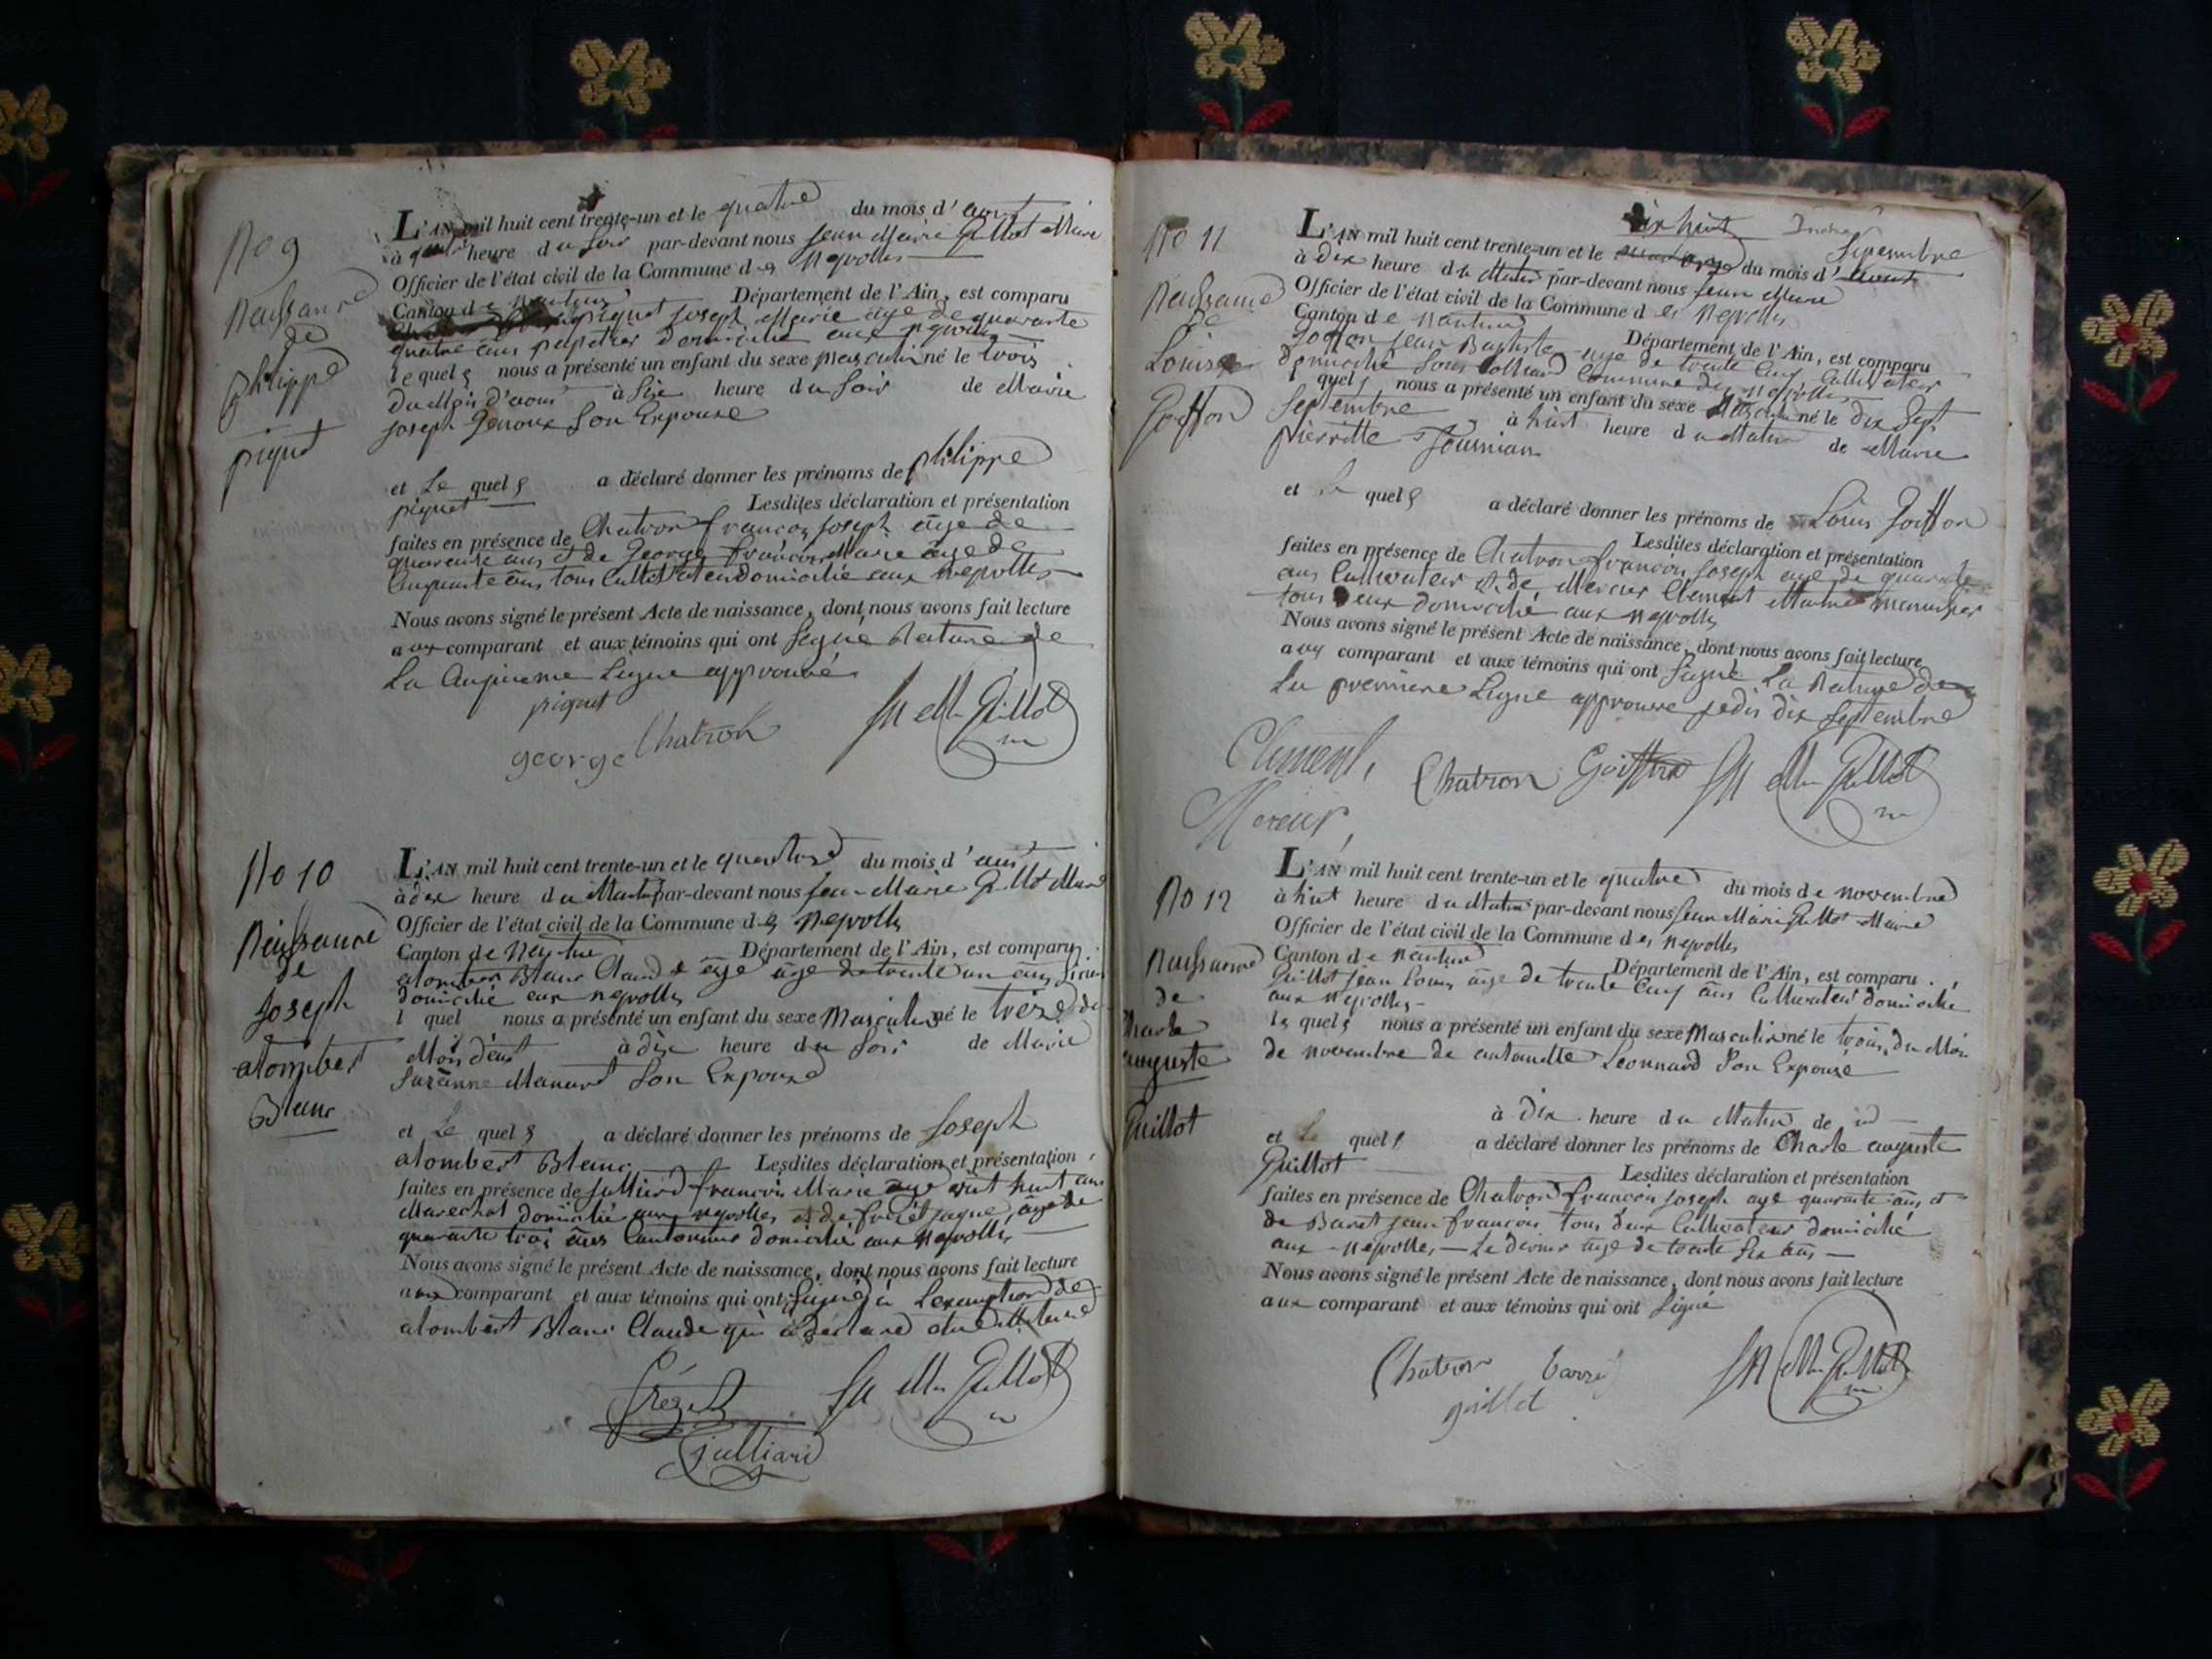 No 9
Naissance
de
philippe
piquet
L'AN mil huit cent trente-un et le quatre du mois d'aout
à heure du soir par-devant nous Jean Marie Guillot Maire
Officier de l'état civil de la Commune des neyrolles
Canton de Nantua Département de l'Ain, est comparu
piquet joseph Marie age de quarante
quatre ans papetier domicilié aux neyrolles
lequels nous a présenté un enfant du sexe masculin né le trois
du Mois d'aout à Six heure du Soir de Marie
joseph Son Expouse
et Le quels a déclaré donner les prénoms de philippe
piquet Lesdites déclaration et présentation
faites en présence de Chatron françois joseph age de
quarente ans et de George françois Marie age de
Cinquante ans tous Cultivateur domicilié aux neyrolles
Nous avons signé le présent Acte de naissance, dont nous avons fait lecture
aux comparant et aux témoins qui ont Signé Rature de
La Cinquieme Ligne approuvé
piquet
george Chatron Jn Mie Guillot
No 10
Naissance
de
Joseph
alombert
Blanc
L'AN mil huit cent trente-un et le quatorze du mois d'aout
à dix heure du Matin par-devant nous Jean Marie Guillot Maire
Officier de l'état civil de la Commune des Neyrolles
Canton de Nantua Département de l'Ain, est comparu
alombert Blanc Claude age de trente un ans
domicilié aux neyrolles
l quel nous a présenté un enfant du sexe Masculin né le treize du
Mois d'aout à dix heure du Soir de Marie
Suzanne Son Expouse
et Le quels a déclaré donner les prénoms de Joseph
alombert Blanc Lesdites déclaration et présentation
faites en présence de Julliard françois Marie age vint huit ans
Marechal domicilié aux neyrolles et de frezet age de
quarante trois ans Cantonnier domicilié aux Neyrolles
Nous avons signé le présent Acte de naissance, dont nous avons fait lecture
aux comparant et aux témoins qui ont Signé a Lexemption de
alombert Blanc Claude qui a déclaré
frézet Jn Mie Guillot
julliard
No 11
Naissance
de
Louis
Goiffon
dix huit
L'AN mil huit cent trente-un et le du mois d'aout Septembre
à Dix heure du Matin par-devant nous Jean Marie
Officier de l'état civil de la Commune des Neyrolles
Canton de Nantua Département de l'Ain, est comparu
Goiffon Jean Baptiste age de trente Cinq Cultivateur
domicilié Commune des Neyrolles
quels nous a présenté un enfant du sexe Masculin né le dix Sept
Septembre à huit heure du Matin de Marie
pierrette
et Le quels a déclaré donner les prénoms de Louis Goiffon
Lesdites déclaration et présentation
faites en présence de Chatron françois Joseph age de quarante
ans Cultivateur et de Mercier Clément menuisier
tous deux domicilié aux neyrolles
Nous avons signé le présent Acte de naissance, dont nous avons fait lecture
aux comparant et aux témoins qui ont Signé La Rature de
La premiere Ligne approuve Septembre
Clément, Chatron Goiffon Jn Mie Guillot
Mercier,
No 12
Naissance
de
Charle
auguste
Guillot
L'AN mil huit cent trente-un et le quatre du mois de novembre
à huit heure du Matin par-devant nous Jean Marie Guillot Maire
Officier de l'état civil de la Commune des neyrolles
Canton de Nantua Département de l'Ain, est comparu
Guillot Jean Louis age de trente Cinq ans Cultivateur domicilié
aux neyrolles
le quels nous a présenté un enfant du sexe Masculin né le trois du Mois
de novembre de antoinette Léonnard Son Expouse
à Dix heure du Matin de
et Le quels a déclaré donner les prénoms de Charle auguste
Guillot Lesdites déclaration et présentation
faites en présence de Chatron françois joseph age quarante ans et
de Barret jean françois tous deux Cultivateur domicilié
aux neyrolles Le dernier age de trente Six ans
Nous avons signé le présent Acte de naissance, dont nous avons fait lecture
aux comparant et aux témoins qui ont Signé
Chatron Jn Mie Guillot
guillot